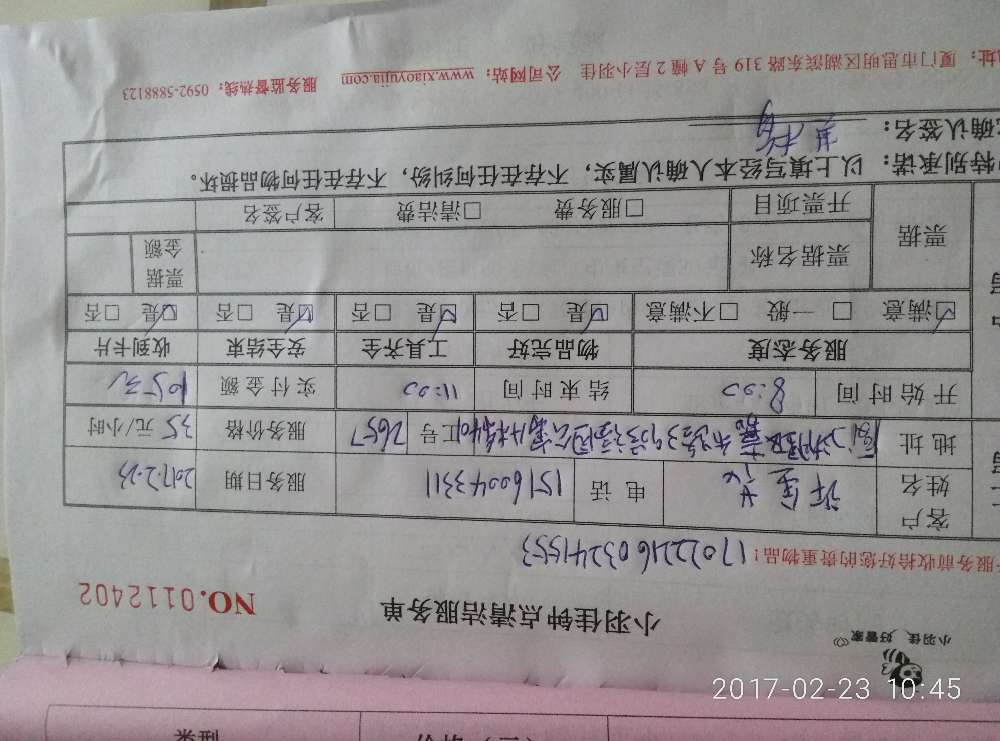 小羽佳 好管家
小羽佳钟点清洁服务单 NO.0112402
服务前收拾好您的贵重物品! 17022160324 1553
客户姓名 许 电话 15160043311 服务日期 2017.2.23
地址 工号 2657 服务价格 35元/小时
开始时间 8:00 结束时间 11:00 实付金额 105元
服务态度 物品完好 工具齐全 安全结束 收到卡片
☑满意 □一般 □不满意 ☑是 □否 ☑是 □否 ☑是 □否 ☑是 □否
票据 票据名称 票据金额
开票项目 □服务费 □清洁费 客户签名
特别承诺: 以上填写经本人确认属实,不存在任何纠纷,不存在任何物品损坏。
确认签名:
址: 厦门市思明区湖滨东路 319 号 A 幢 2 层小羽佳 公司网站: www.xiaoyujia.com 服务监督热线: 0592-5888123
2017-02-23 10:45